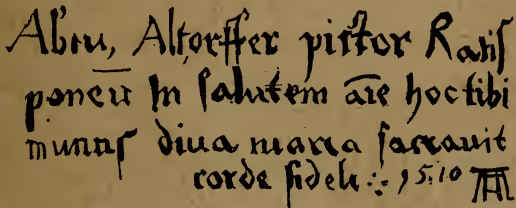 Albrtu, Altorffer pictor Ratis
ponen̄ In salutem aīe hoc tibi
munus diua maria sacrauit
corde fideli ∴ 1510